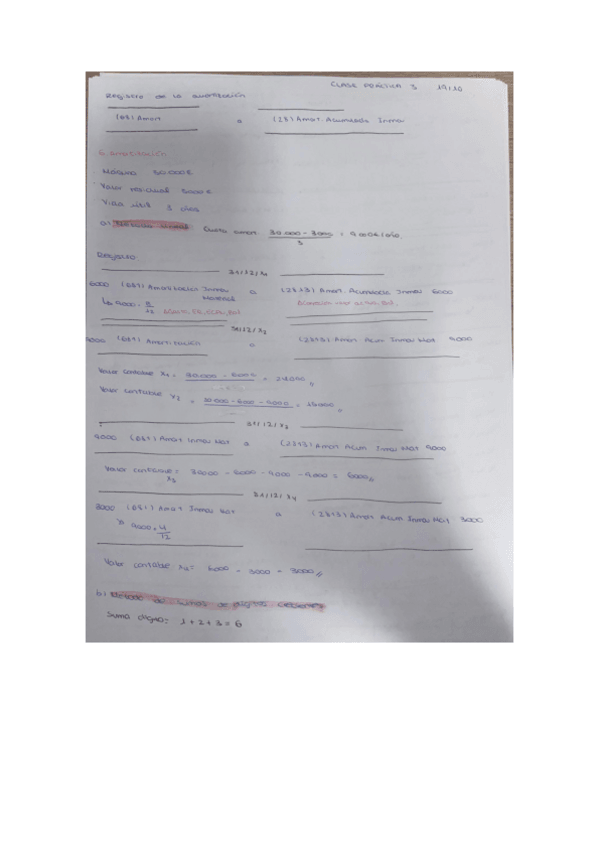 CLASE PRÁCTICA 3 19/10
Registro de la amortización
(68) Amort a (28) Amort. Acumulada Inmov
Amortización
Máquina 30.000€
Valor residual 3000€
Vida útil 3 años
a) Cuota amort. 30.000 - 3000 / 3 = 9000€/año
Registro
31/12/X1
6000 (681) Amortización Inmov Material a (2813) Amort. Acumulada Inmov 6000
9000 · 8/12
31/12/X2
9000 (681) Amortización a (2813) Amort Acum Inmov Mat 9000
Valor contable X1 = 30.000 - 6000 = 24000
Valor contable X2 = 30.000 - 6000 - 9000 = 15000
31/12/X3
9000 (681) Amort Inmov Mat a (2813) Amort Acum Inmov Mat 9000
Valor contable X3 = 30000 - 6000 - 9.000 - 9.000 = 6000
31/12/X4
3000 (681) Amort Inmov Mat a (2813) Amort Acum Inmov Mat 3000
9000 · 4/12
Valor contable X4 = 6000 - 3000 = 3000
b) Método de sumas de dígitos
Suma dígitos: 1+2+3=6